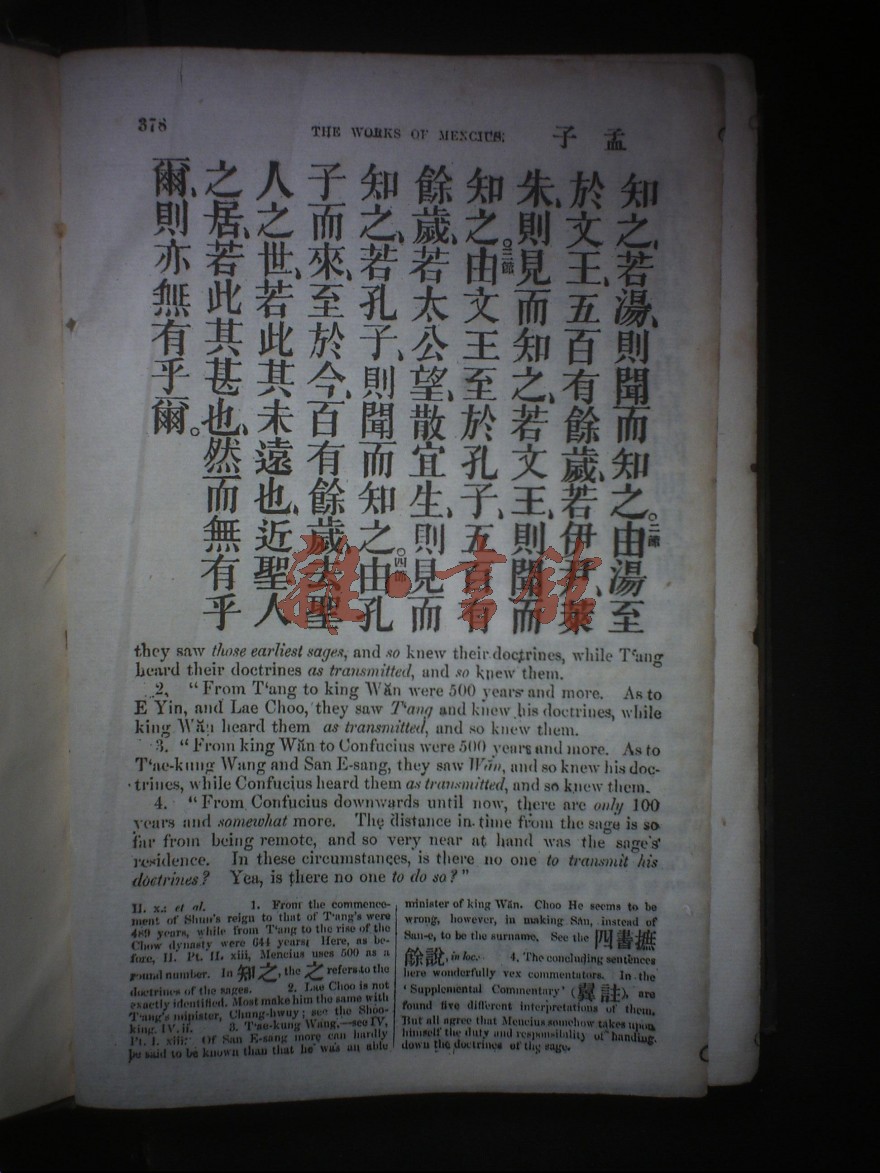 378
THE WORKS OF MENCIUS.
孟子
知之、若湯、則聞而知之。○二節由湯至
於文王、五百有餘歲、若伊尹、萊
朱、則見而知之、若文王、則聞而
知之。○三節由文王至於孔子、五百有
餘歲、若太公望、散宜生、則見而
知之、若孔子、則聞而知之。○四節由孔
子而來、至於今、百有餘歲、去聖
人之世、若此其未遠也、近聖人
之居、若此其甚也、然而無有乎
爾、則亦無有乎爾。
they saw those earliest sages, and so knew their doctrines, while T'ang
heard their doctrines as transmitted, and so knew them.
2. "From T'ang to king Wăn were 500 years and more. As to
E Yin, and Lae Choo, they saw T'ang and knew his doctrines, while
king Wăn heard them as transmitted, and so knew them.
3. "From king Wăn to Confucius were 500 years and more. As to
T'ae-kung Wang and San E-sang, they saw Wăn, and so knew his doc-
trines, while Confucius heard them as transmitted, and so knew them.
4. "From Confucius downwards until now, there are only 100
years and somewhat more. The distance in time from the sage is so
far from being remote, and so very near at hand was the sage's
residence. In these circumstances, is there no one to transmit his
doctrines? Yea, is there no one to do so?"
II. x.: et al. 1. From the commence-
ment of Shun's reign to that of T'ang's were
489 years, while from T'ang to the rise of the
Chow dynasty were 644 years; Here, as be-
fore, II. Pt. II. xiii, Mencius uses 500 as a
round number. In 知之, the 之 refers to the
doctrines of the sages. 2. Lae Choo is not
exactly identified. Most make him the same with
T'ang's minister, Chung-hwuy; see the Shoo-
king. IV. ii. 3. T'ae-kung Wang,—see IV,
Pt. I. xiii. Of San E-sang more can hardly
be said to be known than that he was an able
minister of king Wăn. Choo He seems to be
wrong, however, in making San, instead of
San-e, to be the surname. See the 四書摭
餘說, in loc. 4. The concluding sentences
here wonderfully vex commentators. In the
'Supplemental Commentary' (翼註), are
found five different interpretations of them.
But all agree that Mencius somehow takes upon
himself the duty and responsibility of handing
down the doctrines of the sage.